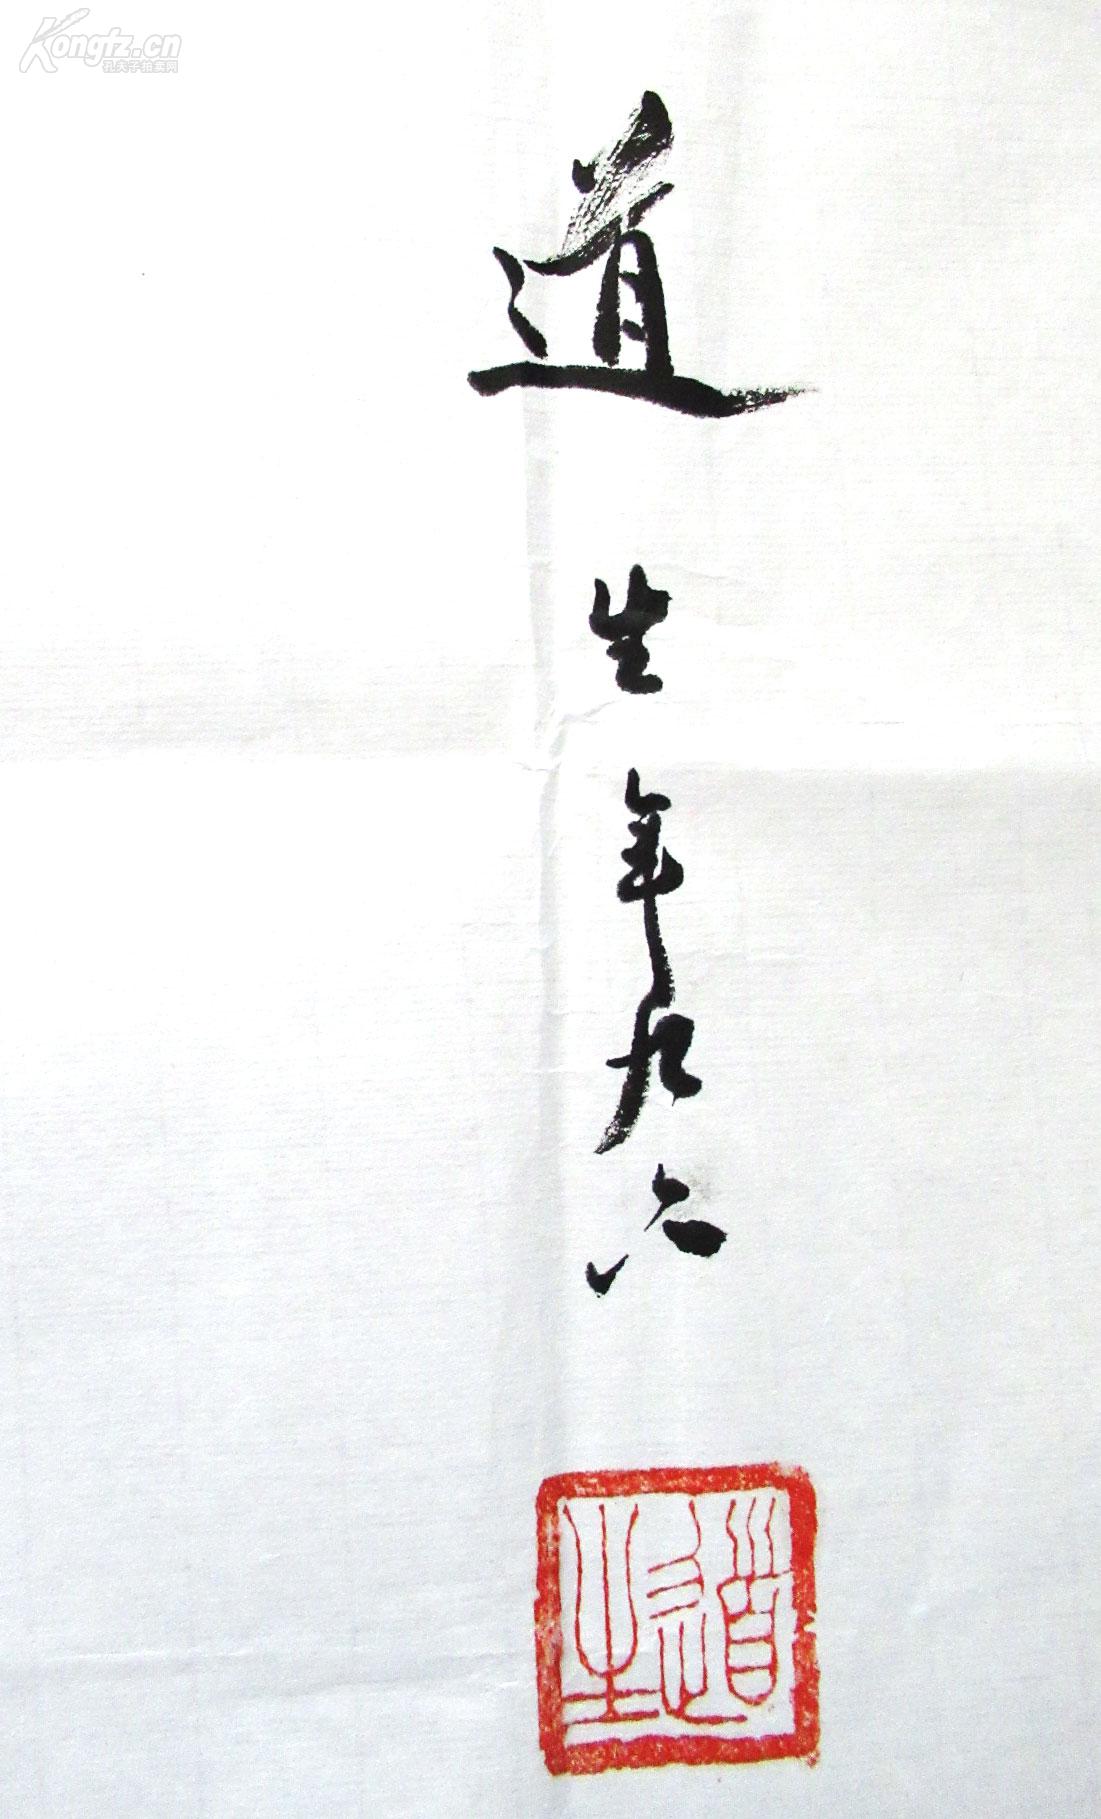 Kongfz.cn
孔夫子拍卖网
道生年九六
道生